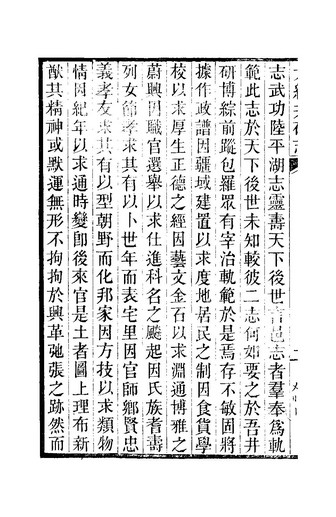 志武功陸平湖志靈壽天下後世言邑志者羣奉爲軌
範此志於天下後世未知較彼二志何如要之於吾井
研博綜前蹤包羅眾有宰治軌範於是焉存不敏固將
據作政譜因疆域建置以求度地居民之制因食貨學
校以求厚生正德之經因藝文金石以求淵通博雅之
蔚興因職官選舉以求仕進科名之飈起因氏族耆壽
列女節孝求其有以卜世年而表宅里因官師鄉賢忠
義孝友求其有以型朝野而化邦家因方技以求類物
情因紀年以求通時變卽後來官是土者圖上理布新
猷其精神或默運無形不拘拘於興革弛張之跡然而